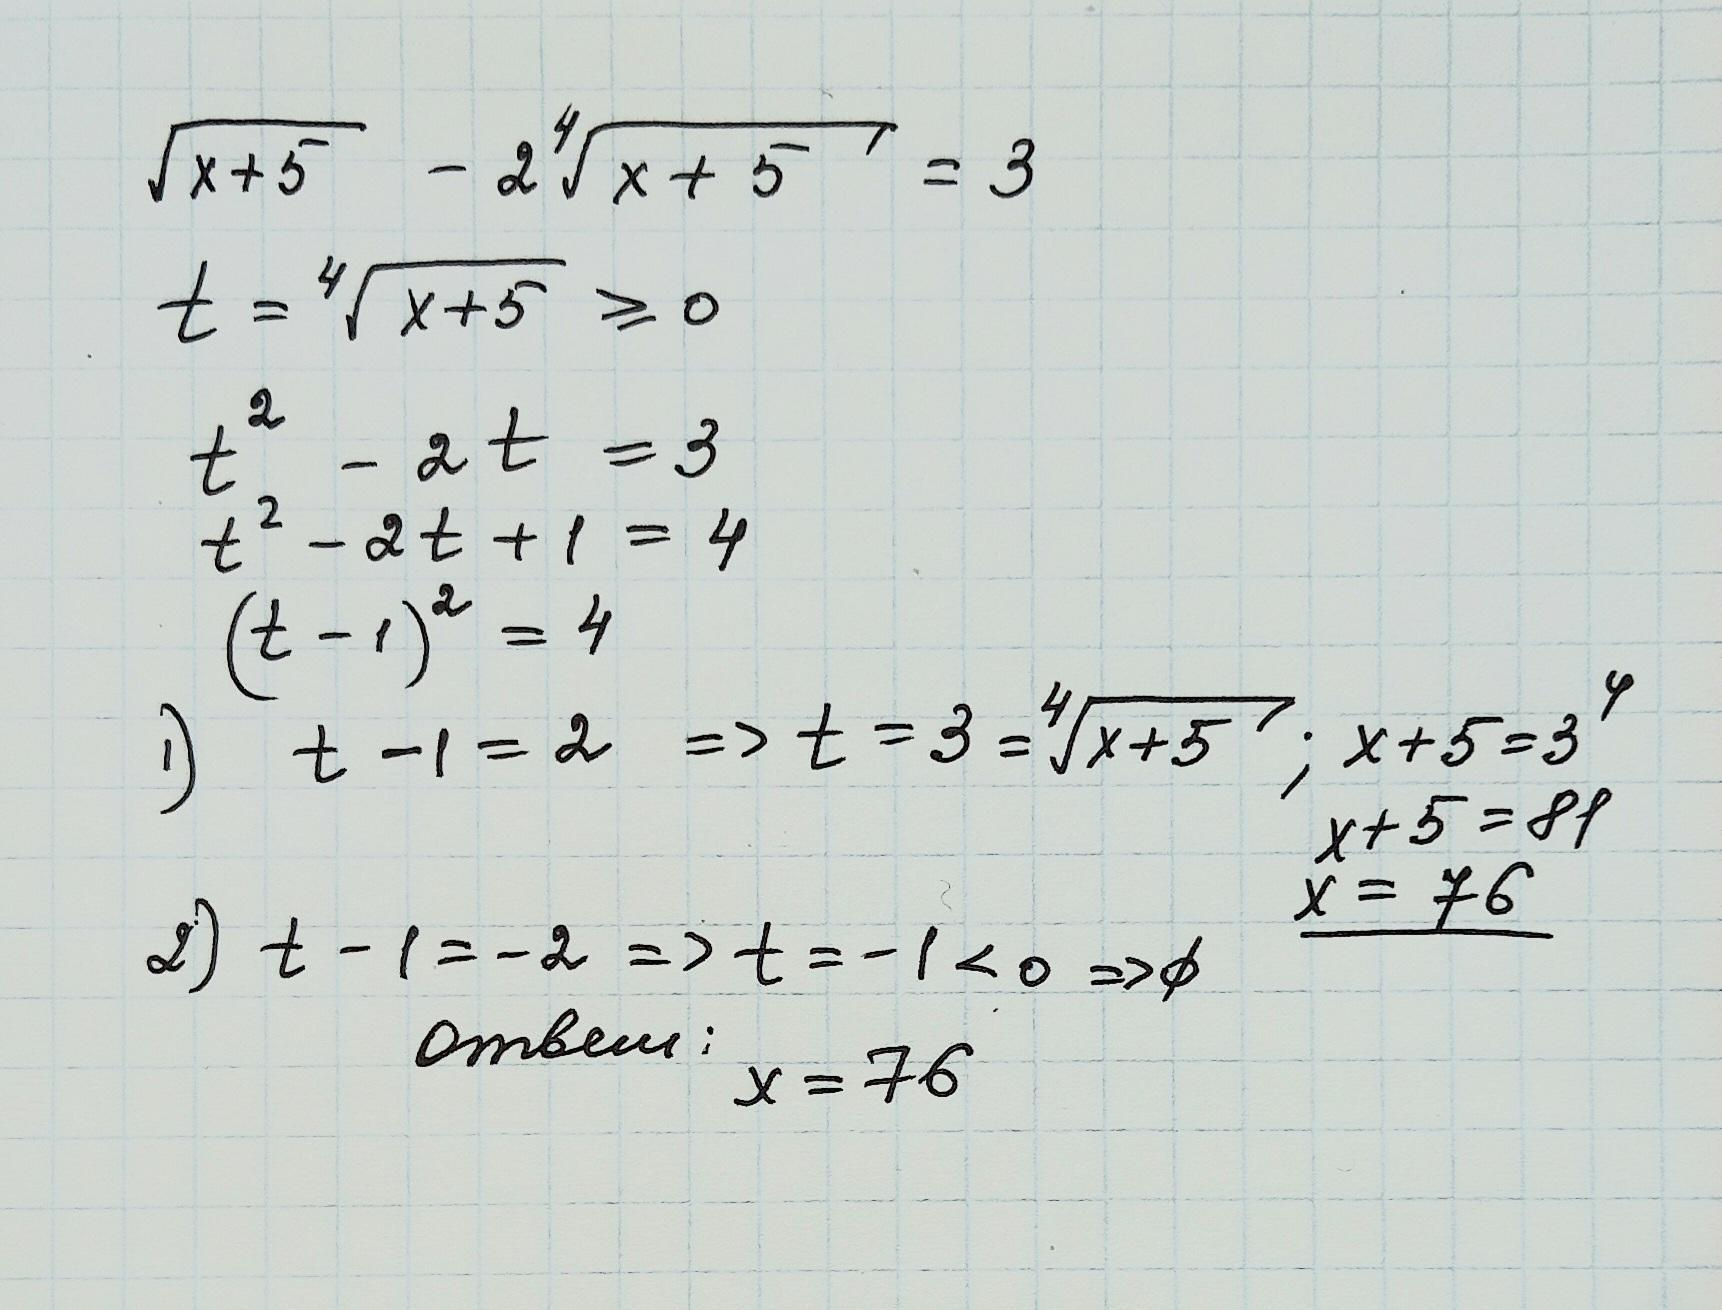 √(x+5) - 2∜(x+5) = 3
t = ∜(x+5) ≥ 0
t² - 2t = 3
t² - 2t + 1 = 4
(t - 1)² = 4
1) t - 1 = 2 => t = 3 = ∜(x+5) ; x+5 = 3⁴
x+5 = 81
x = 76
2) t - 1 = -2 => t = -1 < 0 => ∅
Ответ: x = 76